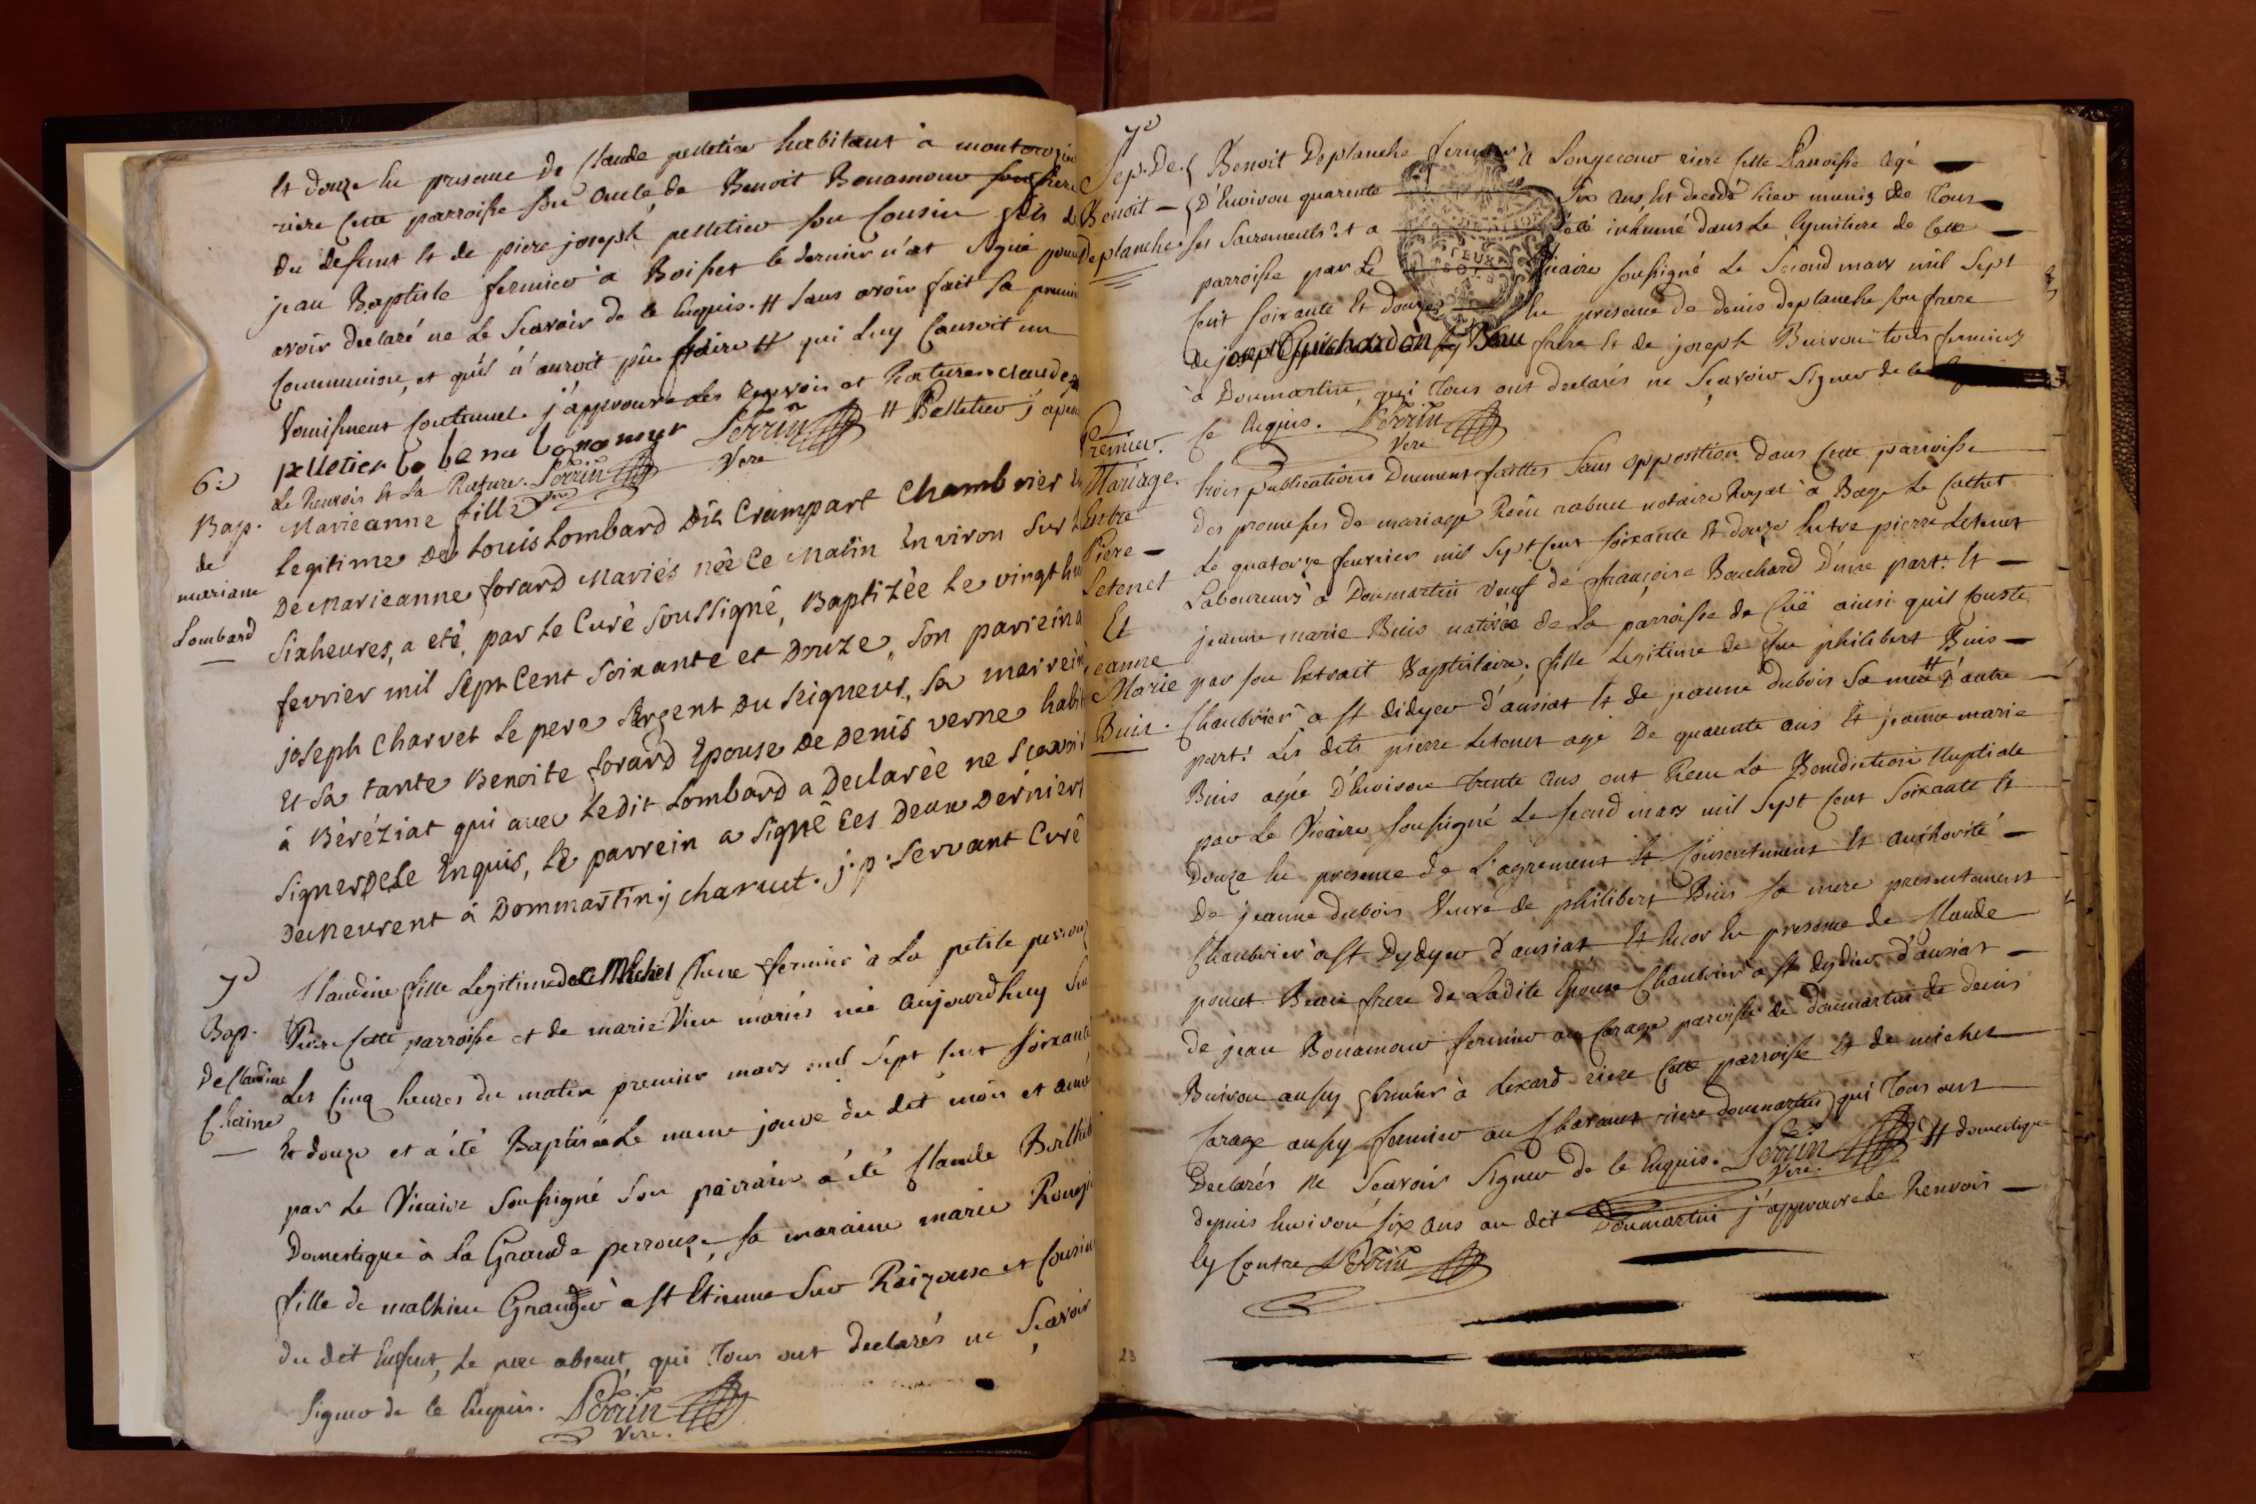 Et douze En presence de Claude pelletier habitant à
riere Cette parroisse son oncle, de Benoit Bonamour son frere
du defunt Et de piere joseph pelletier son Cousin fils de
jean Baptiste fermier à Boisset le dernier n'at signé pour
avoir declaré ne le sçavoir de ce Enquis. # sans avoir fait sa premiere
Communion, et qu'il n'auroit pû faire # qui luy Causoit un
Vomissement Continuel. j'approuve les renvois et Rature claude
pelletier be be nu bonamur Perrin Vere # Pelletier j'apr
le Renvois Et la Rature. Perrin
6e
Bap.
de
mariane
Lombard
Marieanne fille
Legitime De Louis Lombard Dit Crampart Chambrier
De Marieanne forard Mariés née Ce Matin Environ sur
Sixheures, a eté, par Le Curé soussigné, Baptizée Le vingt hui
fevrier mil sept Cent soixante et Douze, son parrein a
joseph Charvet Le pere sergent Du seigneur, sa marreine
Et sa tante Benoite forard Epouse De Denis verne habi
à Béréziat qui avec Ledit Lombard a Declarée ne sçavoir
signer De Le Enquis, Le parrein a signé Ces Deux Derniers
Demeurent à Dommartin j charuet. j. p. servant Curé
7e
Bap.
De Claudine
Chaine
Claudine fille Legitime de Michel Chene fermier à La petite perrouz
Riere Cette parroisse et de marie Vieu mariés née aujourdhuy sur
Les Cinq heures du matin premier mars mil sept Cent soixante
Et douze et a été Baptisée Le meme jour du dit mois et anné
par Le Vicaire soussigné son pairain a été Claude
Domestique à La Grande perrouze, sa maraine marie
fille de mathieu Granger a st Etienne sur Reizouse et Cousine
du dit Enfant, Le pere absent, qui Tous ont declarés ne sçavoir
signer de ce Enquis. Perrin
Vere.
7e
Sep. De
Benoit
Deplanche
Benoit Deplanche fermier à Longecour riere Cette Parroisse agé
D'Environ quarente six ans, Est decedé hier muniz de Tous
ses Sacrements Et a été inhumé dans Le Cymitiere de Cette
parroisse par Le Vicaire soussigné Le second mars mil sept
Cent soixante Et douze En presence de denis deplanche son frere
de joseph Guichardon Beau frere Et de joseph Buiron tous fermiers
à Dommartin, qui Tous ont declarés ne sçavoir signer de ce
Ce Enquis. Perrin
Vere
Premier.
Mariage.
Entre
Piere
Letenet
Et
jeanne
Marie
Buis.
trois publications Duement faittes sans opposition dans Cette parroisse
des promesses de mariage Reçu rabuel notaire Royal à Bage le Chatel
Le quatorze fevrier mil sept Cent soixante Et douze Entre pierre Letenet
Laboureur à Dommartin veuf de françoise Bouchard D'une part: Et
jeanne marie Buis native de La parroisse de Cuë ainsi quil Conste
par son Extrait Baptistaire, fille Legitime de feu philibert Buis
Chambrier a st didyer d'aussiat Et de jeanne dubois sa mere # d'autre
part: Les dits pierre Letenet agé De quarente ans Et jeanne marie
Buis agée D'Environ trente ans ont Reçu La Benediction Nuptiale
par Le Vicaire soussigné Le second mars mil sept Cent soixante Et
Douze En presence de L'agrement Et Consentement Et authorité
De jeanne dubois Veuve de philibert Buis sa mere presentement
Chambrier a st Dydyer d'aussiat Et Encor En presence de Claude
poncet Buis frere de Ladite Epouse Chambrier a st dydier d'aussiat
de jean Bonamour fermier au Corage parroisse de dommartin de denis
Buiron aussy fermier à Lexard riere Cette parroisse Et de michel
Corage aussy fermier au Charanet riere dommartin, qui Tous ont
Declarés ne sçavoir signer de ce Enquis. Perrin Vere. # domestique
depuis Environ six ans au dit Dommartin j'approuve le Renvois
Cy Contre Perrin
23